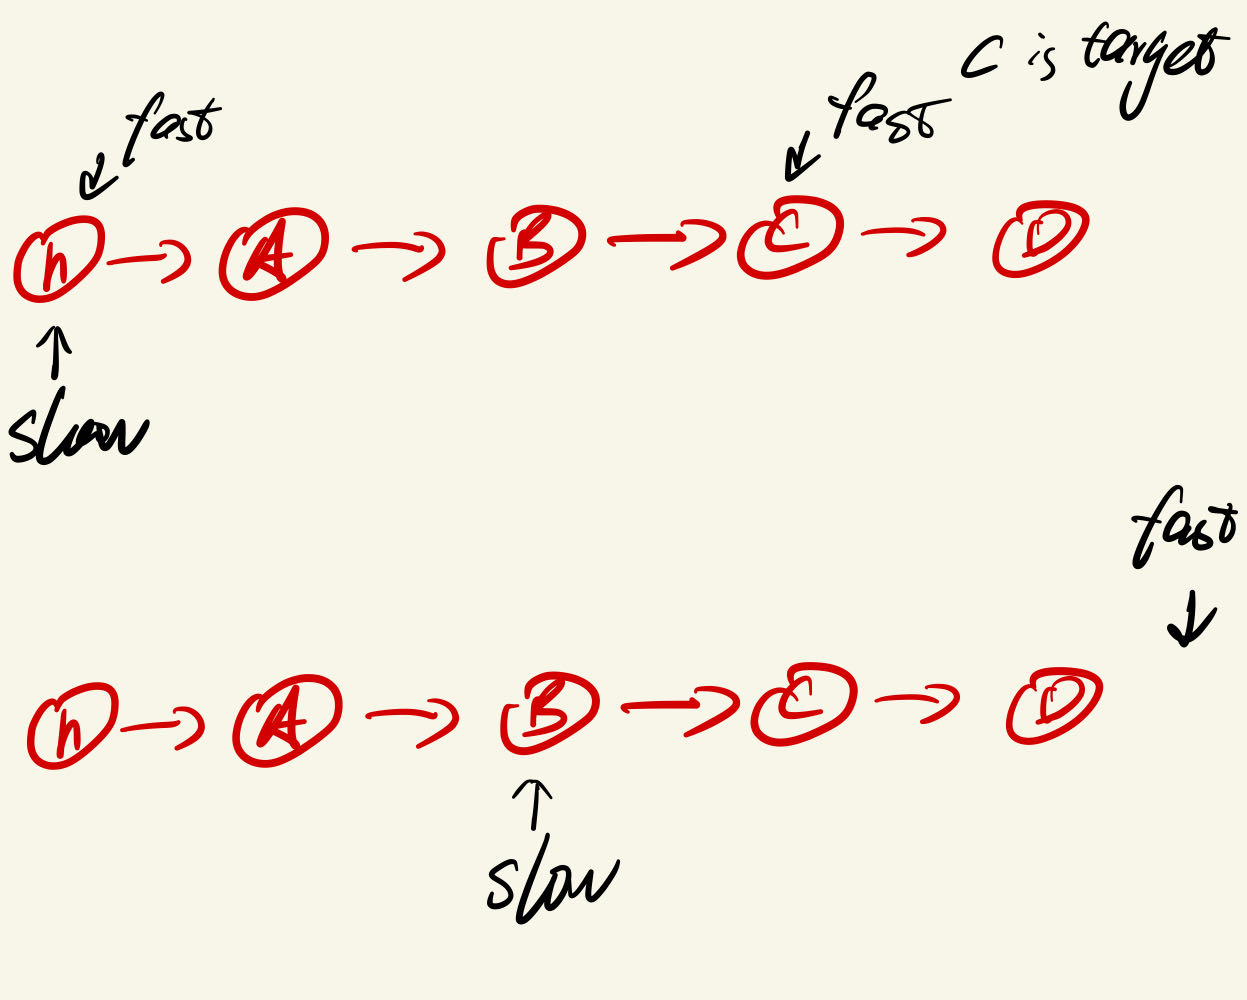 C is target
fast
fast
h → A → B → C → D
slow
fast
h → A → B → C → D
slow